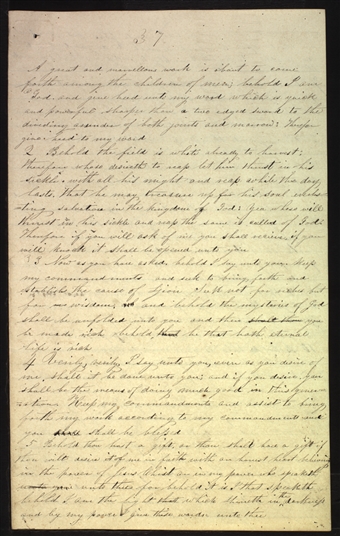 37
A great and marvellous work is about to come
forth among the children of men; behold I am
God, and give heed unto my word which is quick
and powerful sharper then a two edged sword to the
dividing assunder of both joints and marrow; Therefore
give heed to my word
2 Behold the field is white already to harvest;
therefore whoso desireth to reap let him thrust in his
sickle with all his might and reap while the day
lasts, that he may treasure up for his soul everlas-
ting salvation in the kingdom of God: Yea whoso will
thrust in his sickle and reap the same is called of God:
Therefore if you will ask of me you shall recieve; if you
will knock it shall be opened unto you
3 Now as you have asked, behold I say unto you keep
my commandments and seek to bring forth and
establish the cause of Zion: Seek not for riches but
for wisdom; and behold the mysteries of God
shall be unfolded unto you and then shall you
be made rich behold, he that hath eternal
life is rich
4 Verily verily I say unto you, even as you desire of
me, shall it be done unto you; and if you desire, you
shall be the means of doing much good in this gener-
ation. Keep my commandments and assist to bring
forth my work according to my commandments and
you shall be blessed
5 Behold thou hast a gift, or thou shalt have a gift if
thou wilt desire it of me in faith with an honest heart believing
in the power of Jesus Christ or in my power who speaketh
unto thee for, behold it is I that speaketh
behold I am the light which shineth in darkness
and by my power I give these words unto thee